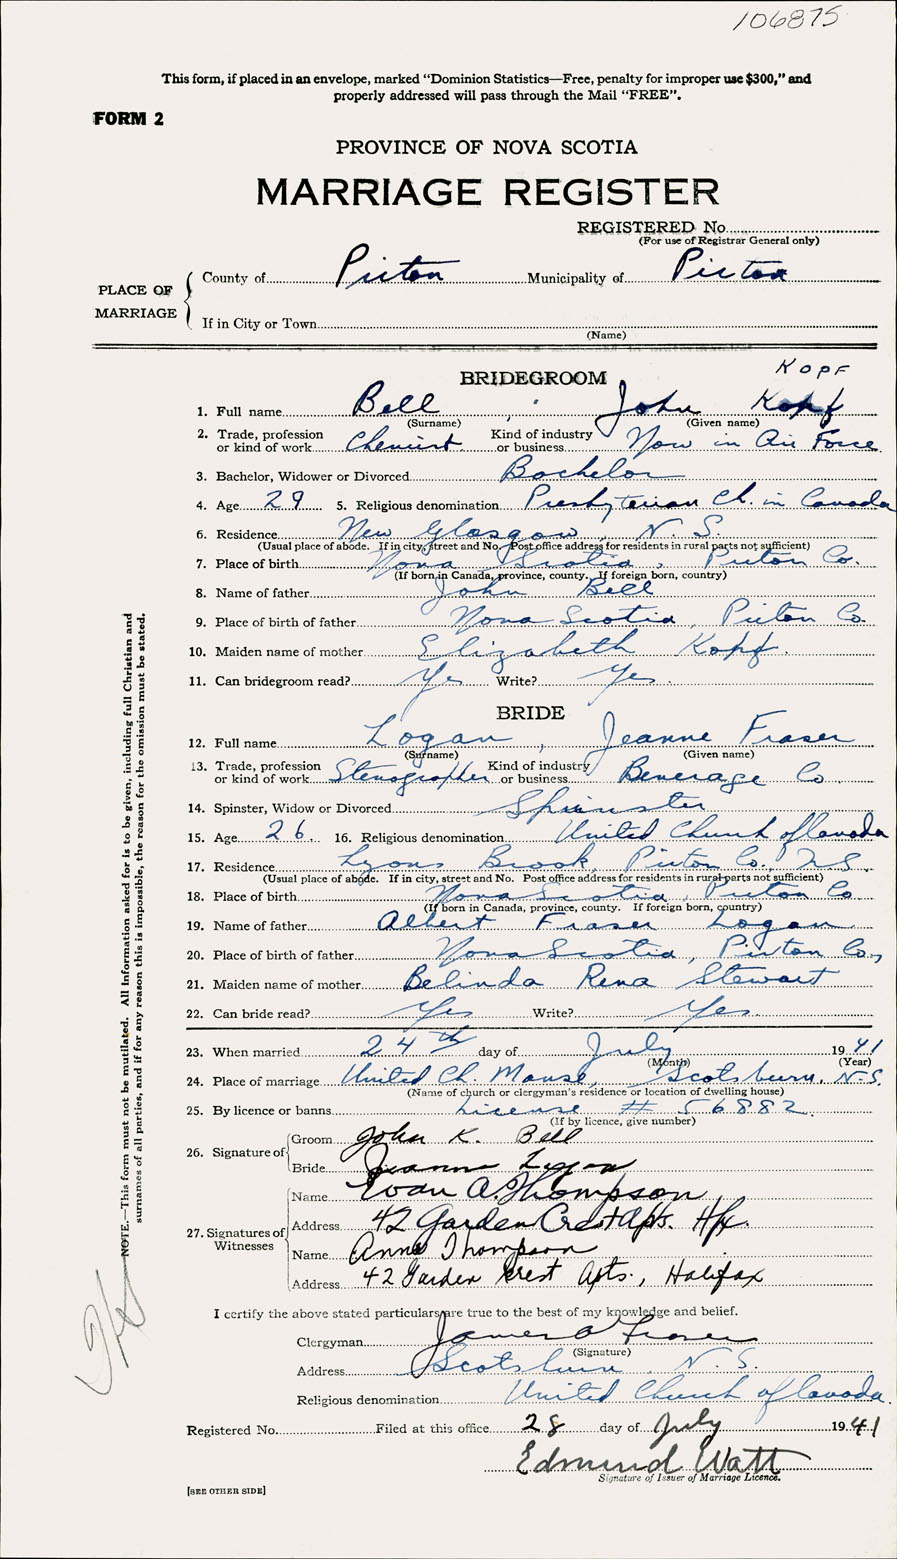 106875
This form, if placed in an envelope, marked “Dominion Statistics—Free, penalty for improper use $300,” and
properly addressed will pass through the Mail “FREE”.
FORM 2
PROVINCE OF NOVA SCOTIA
MARRIAGE REGISTER
REGISTERED No.
(For use of Registrar General only)
PLACE OF MARRIAGE
County of Pictou Municipality of Pictou
If in City or Town
(Name)
BRIDEGROOM KOPF
1. Full name Bell, John Kopf
(Surname) (Given name)
2. Trade, profession or kind of work Chemist Kind of industry or business Now in Air Force
3. Bachelor, Widower or Divorced Bachelor
4. Age 29 5. Religious denomination Presbyterian Ch. in Canada
6. Residence New Glasgow, N. S.
(Usual place of abode. If in city, street and No. Post office address for residents in rural parts not sufficient)
7. Place of birth Nova Scotia, Pictou Co.
(If born in Canada, province, county. If foreign born, country)
8. Name of father John Bell
9. Place of birth of father Nova Scotia, Pictou Co.
10. Maiden name of mother Elizabeth Kopf.
11. Can bridegroom read? Yes Write? Yes.
BRIDE
12. Full name Logan, Jeanne Fraser
(Surname) (Given name)
13. Trade, profession or kind of work Stenographer Kind of industry or business Beverage Co
14. Spinster, Widow or Divorced Spinster
15. Age 26. 16. Religious denomination United Church of Canada
17. Residence Lyons Brook, Pictou Co., N.S.
(Usual place of abode. If in city, street and No. Post office address for residents in rural parts not sufficient)
18. Place of birth Nova Scotia, Pictou Co
(If born in Canada, province, county. If foreign born, country)
19. Name of father Albert Fraser Logan
20. Place of birth of father Nova Scotia, Pictou Co.,
21. Maiden name of mother Belinda Rena Stewart
22. Can bride read? Yes Write? Yes.
23. When married 24th day of July 1941
(Month) (Year)
24. Place of marriage United Ch. Manse, Scotsburn, N.S.
(Name of church or clergyman's residence or location of dwelling house)
25. By licence or banns License # 56882.
(If by licence, give number)
26. Signature of Groom John K. Bell
Bride Jeanne Logan
27. Signatures of Witnesses
Name A. Thompson
Address 42 Garden Crest Apts. Hfx.
Name Anne Thompson
Address 42 Garden Crest Apts., Halifax
I certify the above stated particulars are true to the best of my knowledge and belief.
Clergyman James A Fraser
(Signature)
Address Scotsburn, N. S.
Religious denomination United Church of Canada.
Registered No. Filed at this office 28 day of July 1941
Edmund Watt
Signature of Issuer of Marriage Licence.
[SEE OTHER SIDE]
NOTE.—This form must not be mutilated. All Information asked for is to be given, including full Christian and
surnames of all parties, and if for any reason this is impossible, the reason for the omission must be stated.